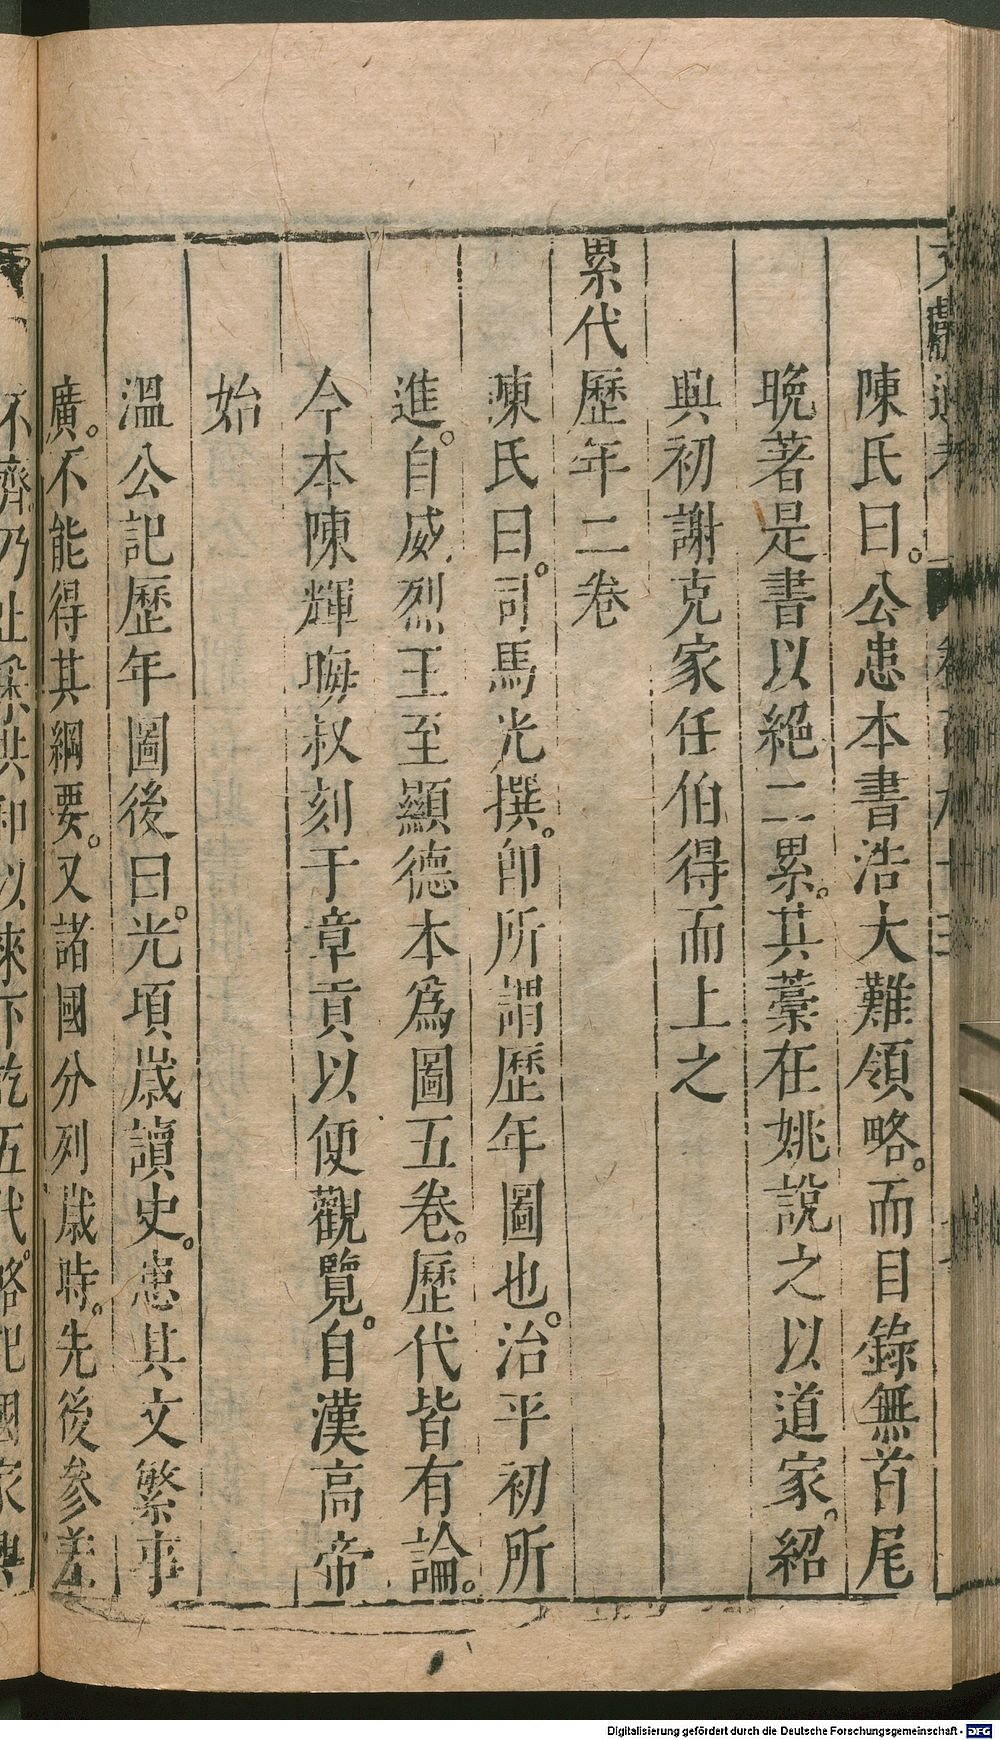 陳氏曰。公患本書浩大難領略。而目錄無首尾
晚著是書以絕二累。其藁在姚說之以道家。紹
興初謝克家任伯得而上之
累代歷年二卷
陳氏曰。司馬光撰。卽所謂歷年圖也。治平初所
進。自威烈王至顯德本爲圖五卷。歷代皆有論。
今本陳輝晦叔刻于章貢以便觀覽。自漢高帝
始
溫公記歷年圖後曰。光項歲讀史。患其文繁事
廣。不能得其綱要。又諸國分列歲時。先後參差
不齊乃止共和以來下訖五代。略記國家興
Digitalisierung gefördert durch die Deutsche Forschungsgemeinschaft - DFG